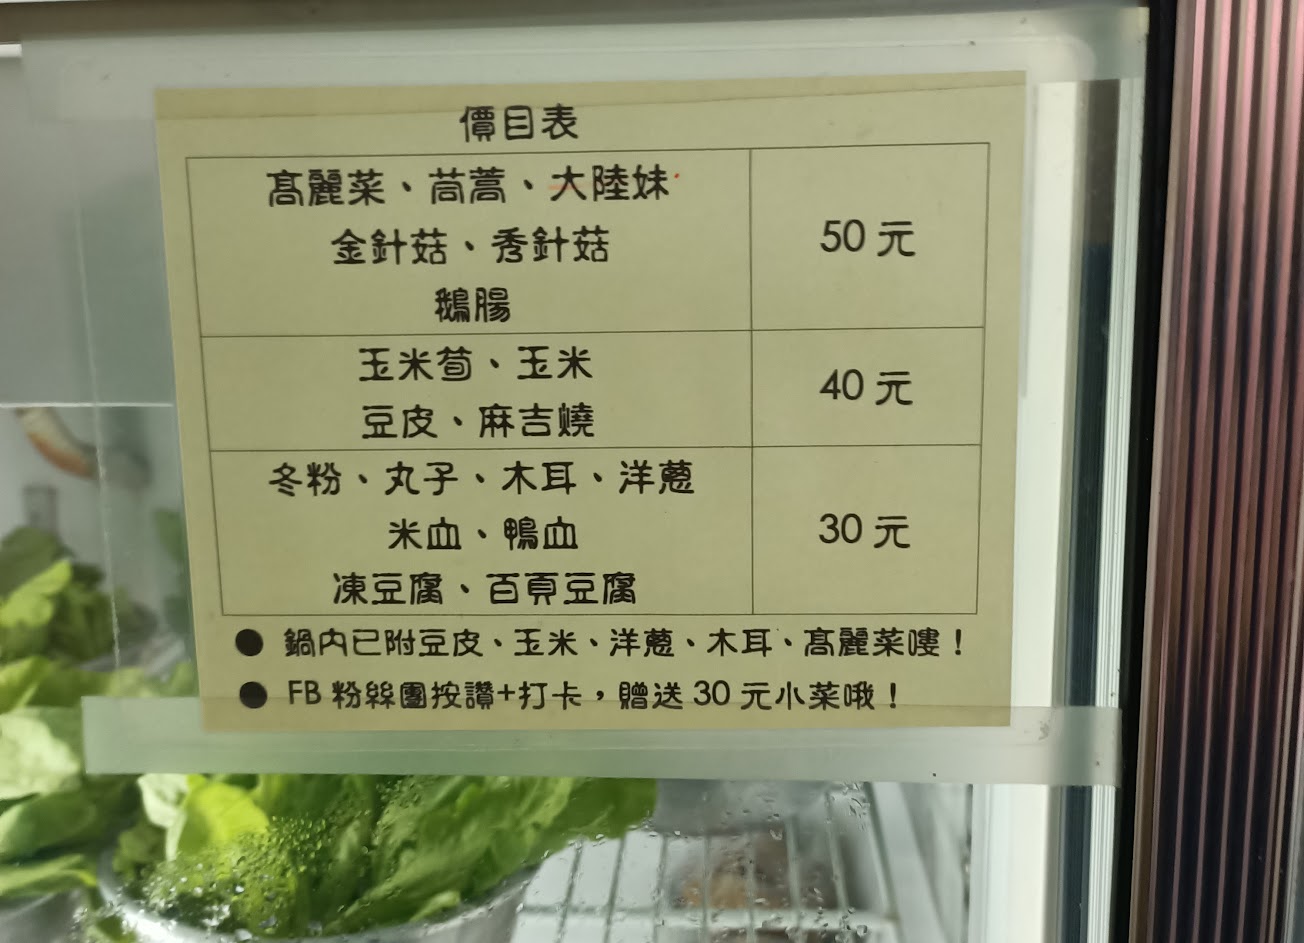 價目表
高麗菜、茼蒿、大陸妹
金針菇、秀針菇
鵝腸
50 元
玉米荀、玉米
豆皮、麻吉燒
40 元
冬粉、丸子、木耳、洋蔥
米血、鴨血
凍豆腐、百頁豆腐
30 元
● 鍋內已附豆皮、玉米、洋蔥、木耳、高麗菜嘍！
● FB 粉絲團按讚+打卡，贈送 30 元小菜哦！